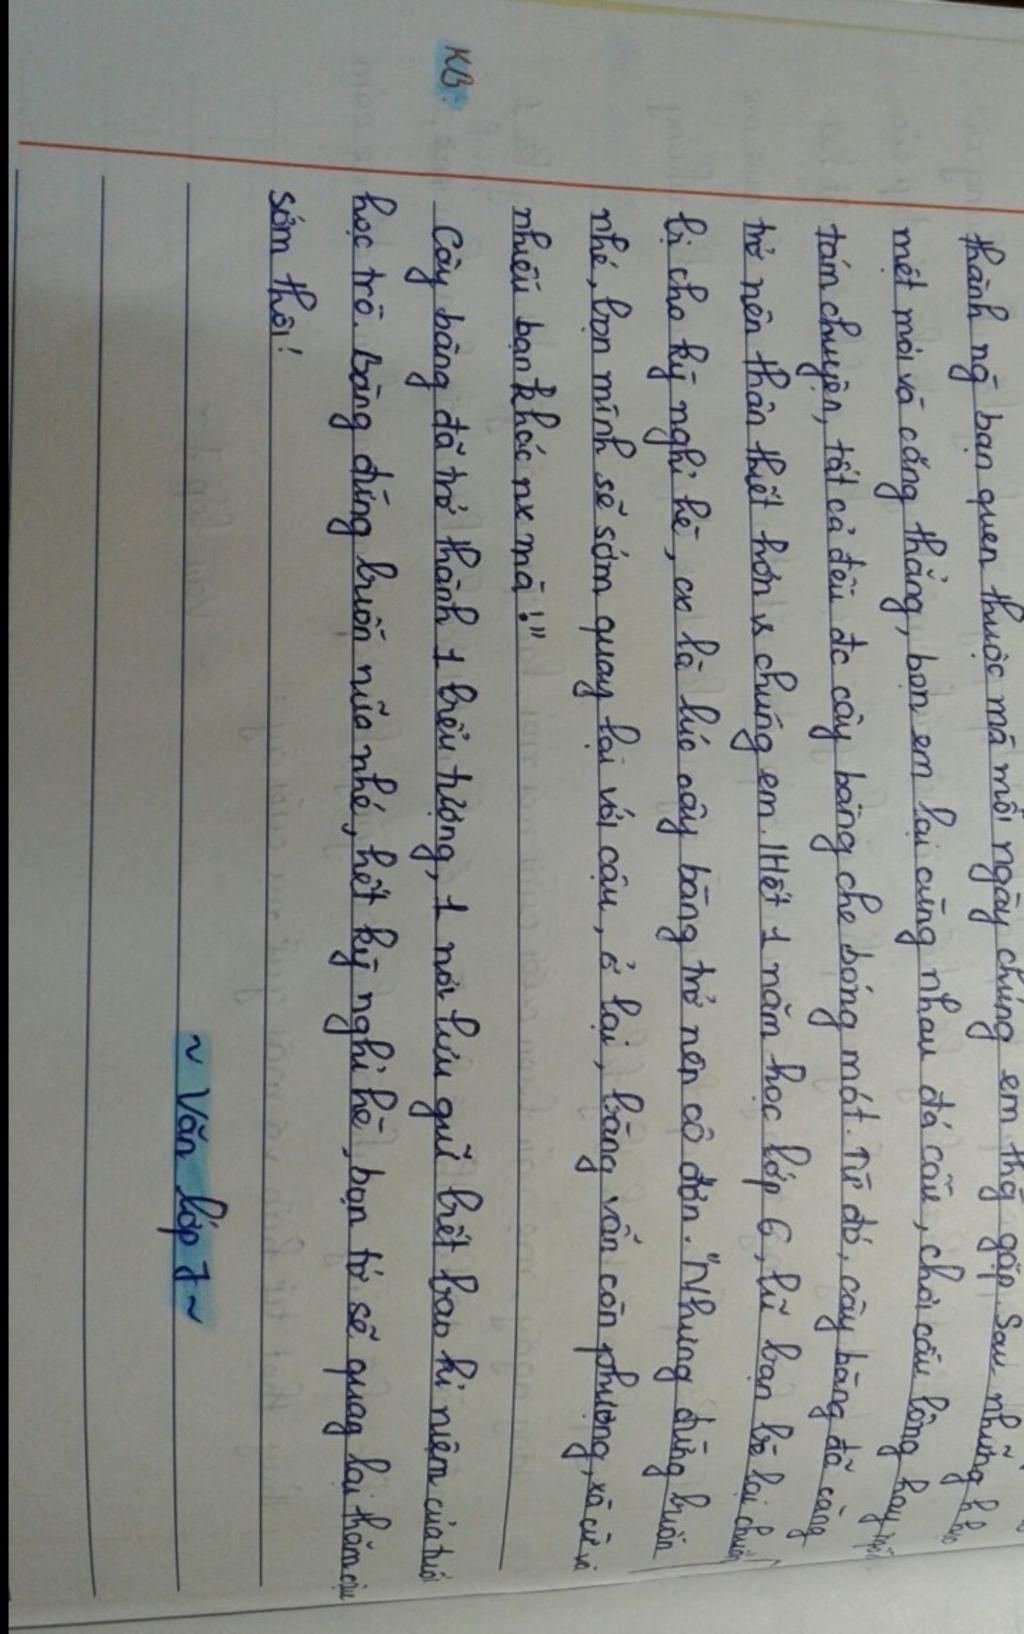 thành ng bạn quen thuộc mà mỗi ngày chúng em thg gặp. Sau những h học
mệt mỏi và căng thẳng, bọn em lại cùng nhau đá cầu, chơi cầu lông hay
tám chuyện, tất cả đều đc cây bàng che bóng mát. Từ đó, cây bàng đã càng
trở nên thân thiết hơn vs chúng em. Hết 1 năm học lớp 6, lũ bạn bè lại chuẩn
bị cho kỳ nghỉ hè, cx là lúc cây bàng trở nên cô đơn. "Nhưng đừng buồn
nhé, bọn mình sẽ sớm quay lại với cậu, ở lại, bàng vẫn còn phượng, xà cừ và
nhiều bạn khác nx mà!"
KB: Cây bàng đã trở thành 1 biểu tượng, 1 nơi lưu giữ biết bao kỉ niệm của tuổi
học trò. Bàng đừng buồn nữa nhé, hết kỳ nghỉ hè, bạn tớ sẽ quay lại thăm cậu
sớm thôi!
~ Văn lớp 7 ~